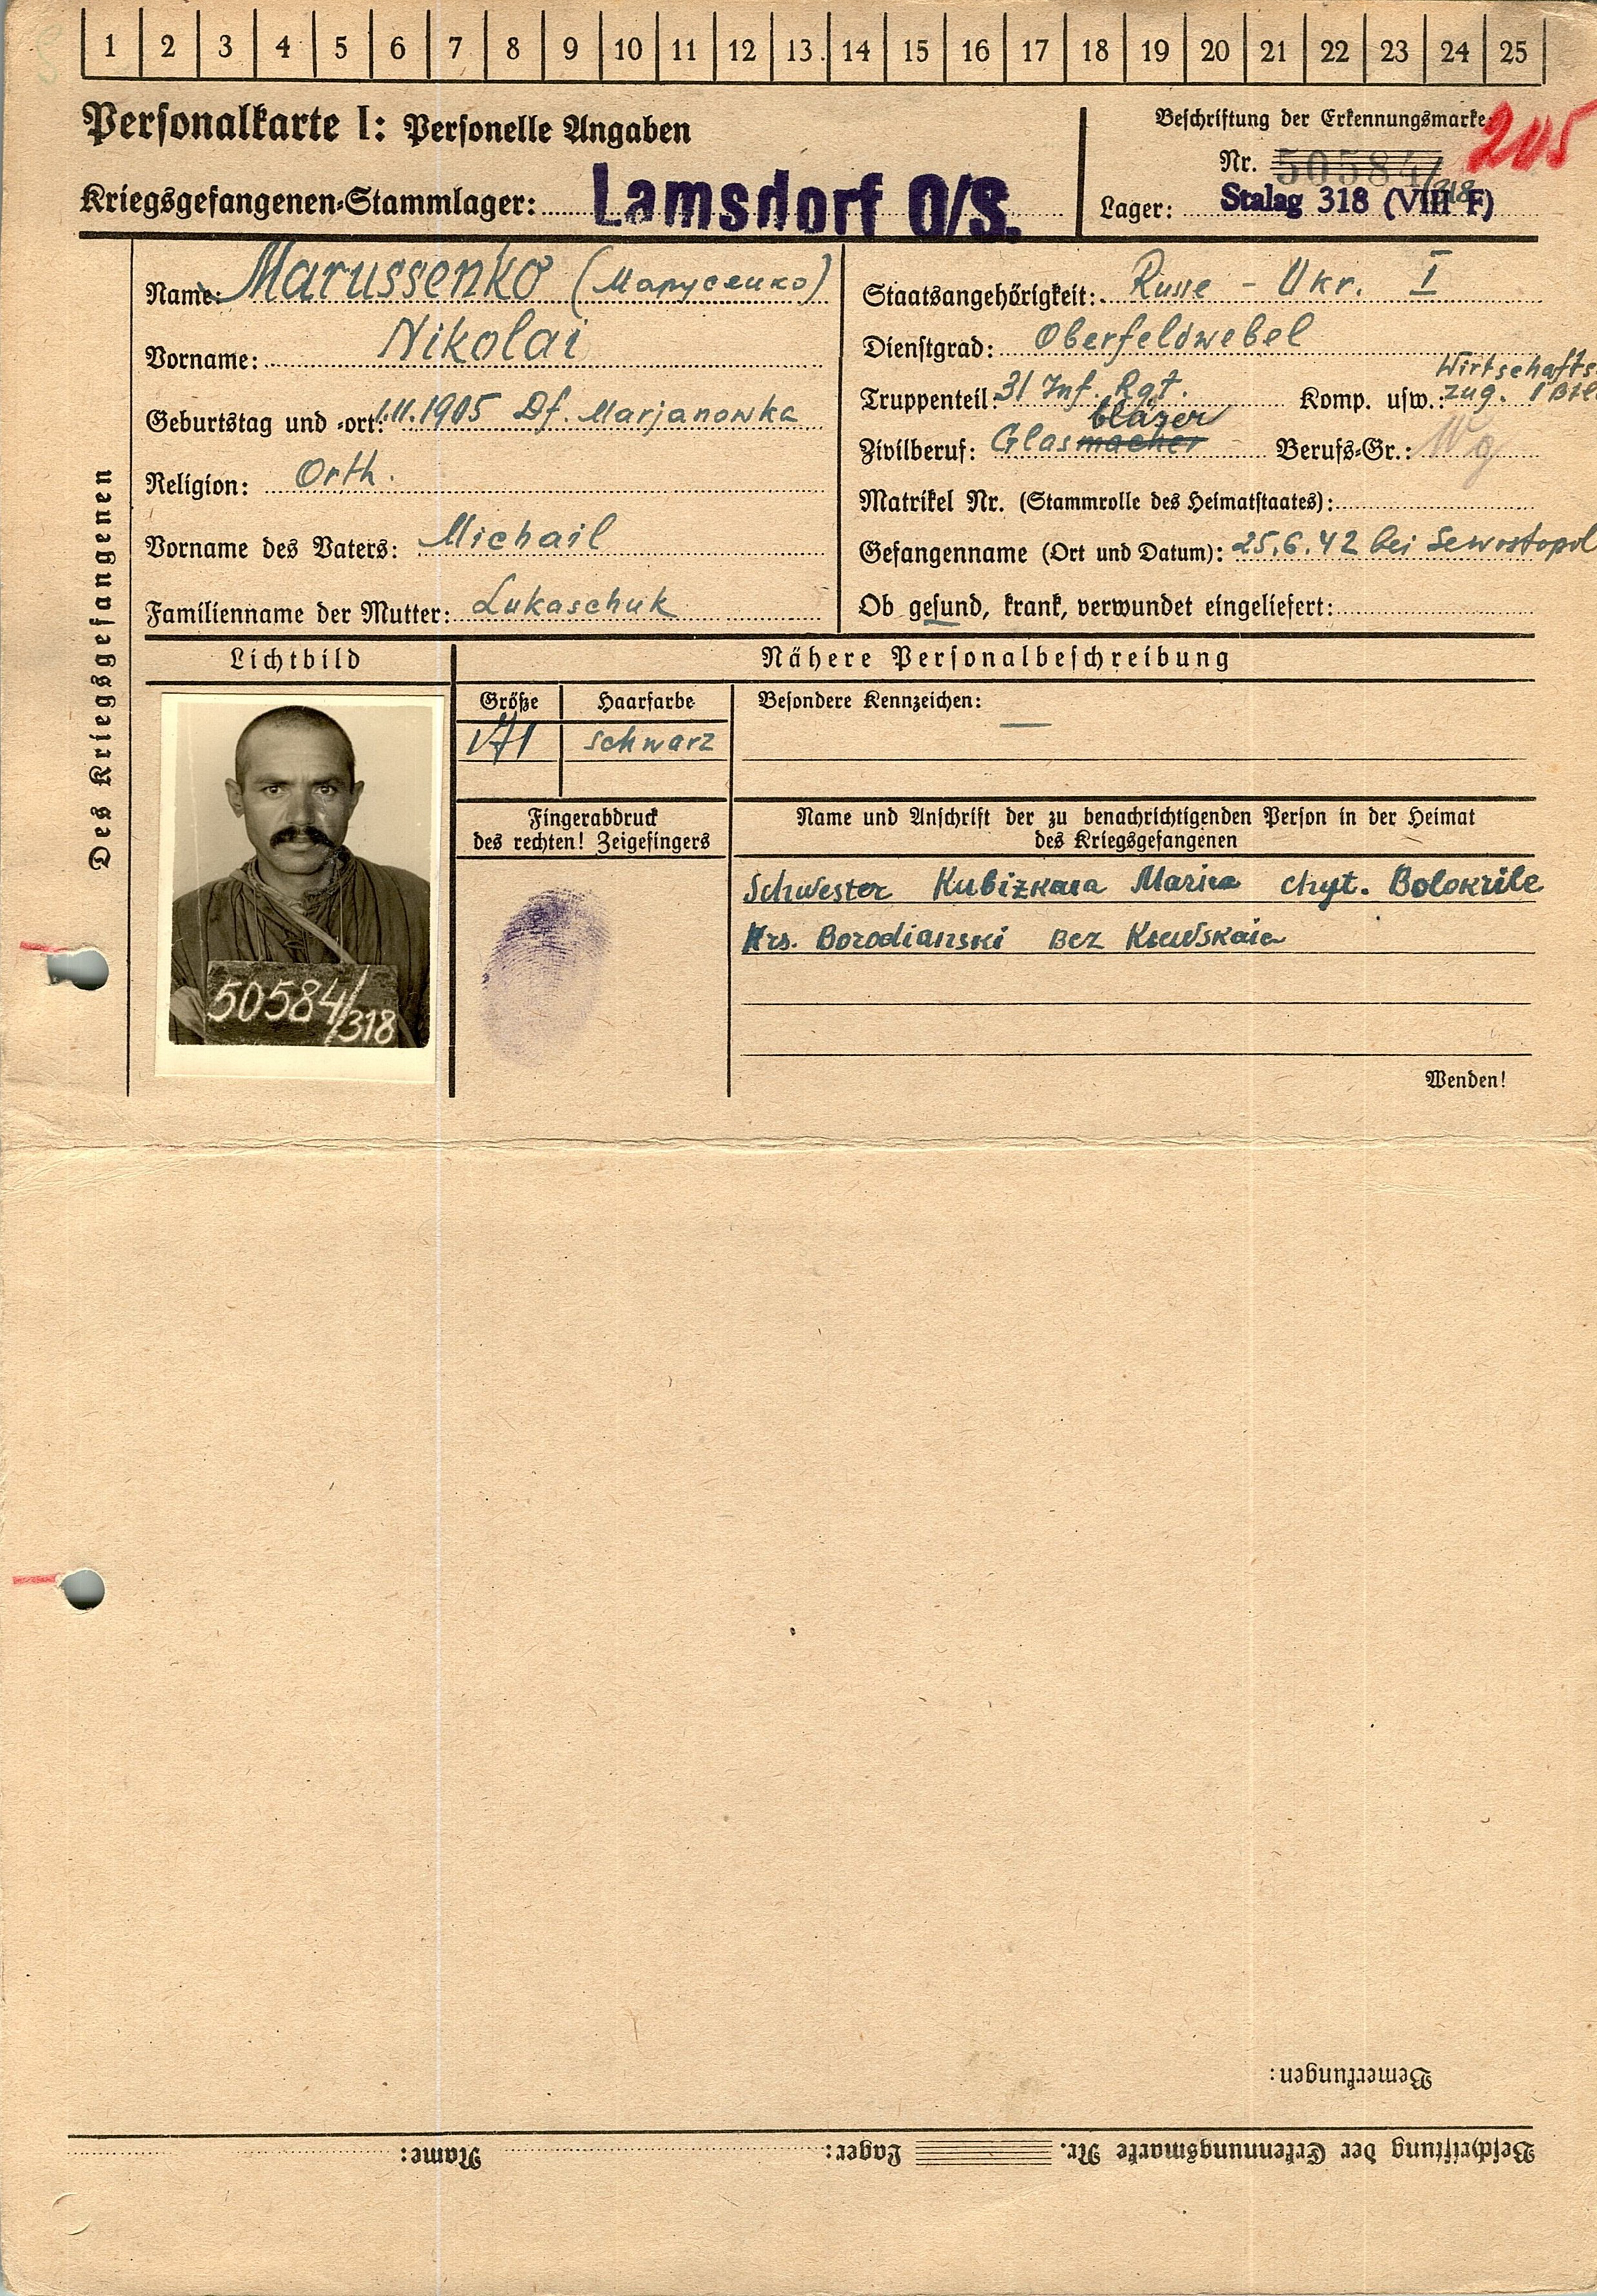 1 2 3 4 5 6 7 8 9 10 11 12 13 14 15 16 17 18 19 20 21 22 23 24 25
Personalkarte I: Personelle Angaben
Kriegsgefangenen-Stammlager: Lamsdorf O/S.
Beschriftung der Erkennungsmarke
205
Nr. 50584/318
Lager: Stalag 318 (VIII F)
Des Kriegsgefangenen
Name: Marussenko (Марусенко)
Vorname: Nikolai
Geburtstag und -ort: 1.11.1905 Df. Marjanowka
Religion: Orth.
Vorname des Vaters: Michail
Familienname der Mutter: Lukaschuk
Staatsangehörigkeit: Russe - Ukr. I
Dienstgrad: Oberfeldwebel
Truppenteil: 31 Inf. Rgt. Komp. usw.: Wirtschafts zug. 1 Btl
Zivilberuf: Glasmacher bläser Berufs-Gr.: Wg
Matrikel Nr. (Stammrolle des Heimatstaates):
Gefangenname (Ort und Datum): 25.6.42 bei Sewostopol
Ob gesund, krank, verwundet eingeliefert:
Lichtbild
Nähere Personalbeschreibung
Größe Haarfarbe
171 schwarz
Besondere Kennzeichen: —
Fingerabdruck
des rechten! Zeigefingers
50584/318
Name und Anschrift der zu benachrichtigenden Person in der Heimat
des Kriegsgefangenen
Schwester Kubizkaia Maria chut. Bolokrile
Krs. Borodianski Bez Kiewskaia
Wenden!
Bemerkungen:
Beschriftung der Erkennungsmarke Nr. Lager: Name: